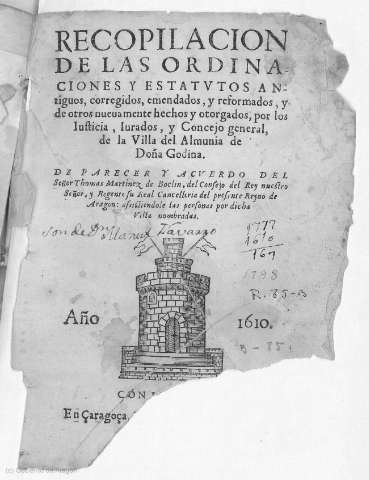 RECOPILACION
DE LAS ORDINA-
CIONES Y ESTATVTOS AN-
tiguos, corregidos, emendados, y reformados, y
de otros nueuamente hechos y otorgados, por los
Iusticia, Iurados, y Concejo general,
de la Villa del Almunia de
Doña Godina.
DE PARECER Y ACVERDO DEL
Señor Thomas Martinez de Boclin, del Consejo del Rey nuestro
Señor, y Regente su Real Cancelleria del presente Reyno de
Aragon: assistiendole las personas por dicha
Villa nombradas.
1777
son de Dn Manuel Navarro
1610
167
1788
R. 85-B
Año 1610.
B-85
CON
En Çaragoça,